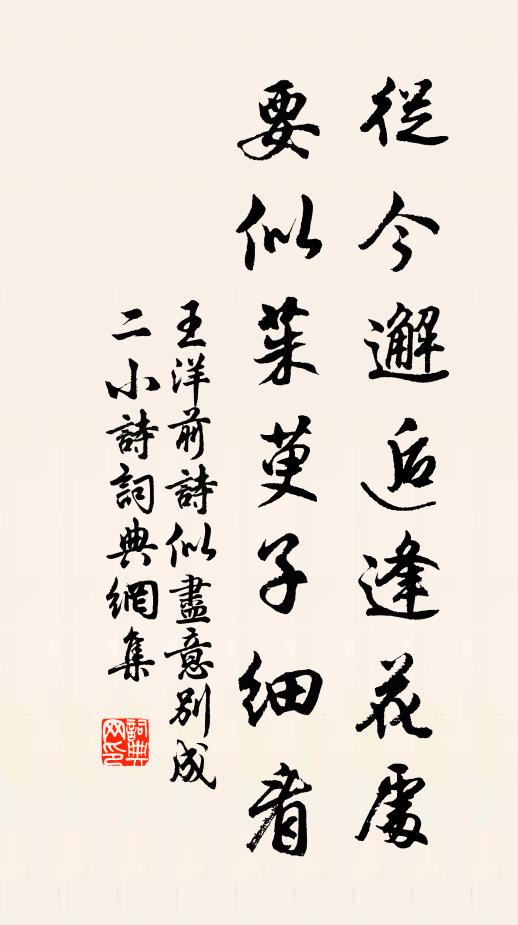 從今邂逅逢花處
要似茱萸子細看
王洋前詩似盡意別成
二小詩詞典網集
詞典网印